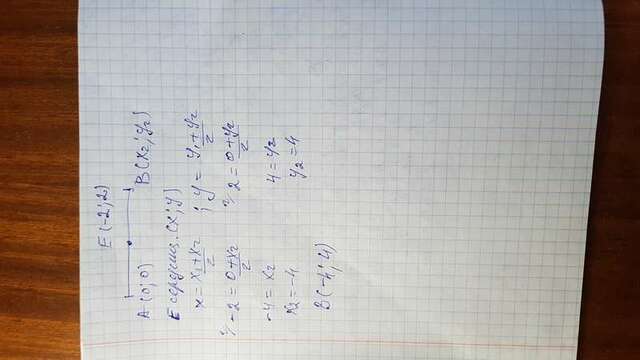 E(-2;2)
A(0;0) B(x₂;y₂)
E середина (x;y)
x = (x₁+x₂)/2 ; y = (y₁+y₂)/2
2/ -2 = (0+x₂)/2 2/ 2 = (0+y₂)/2
-4 = x₂ 4 = y₂
x₂ = -4 y₂ = 4
B(-4;4)